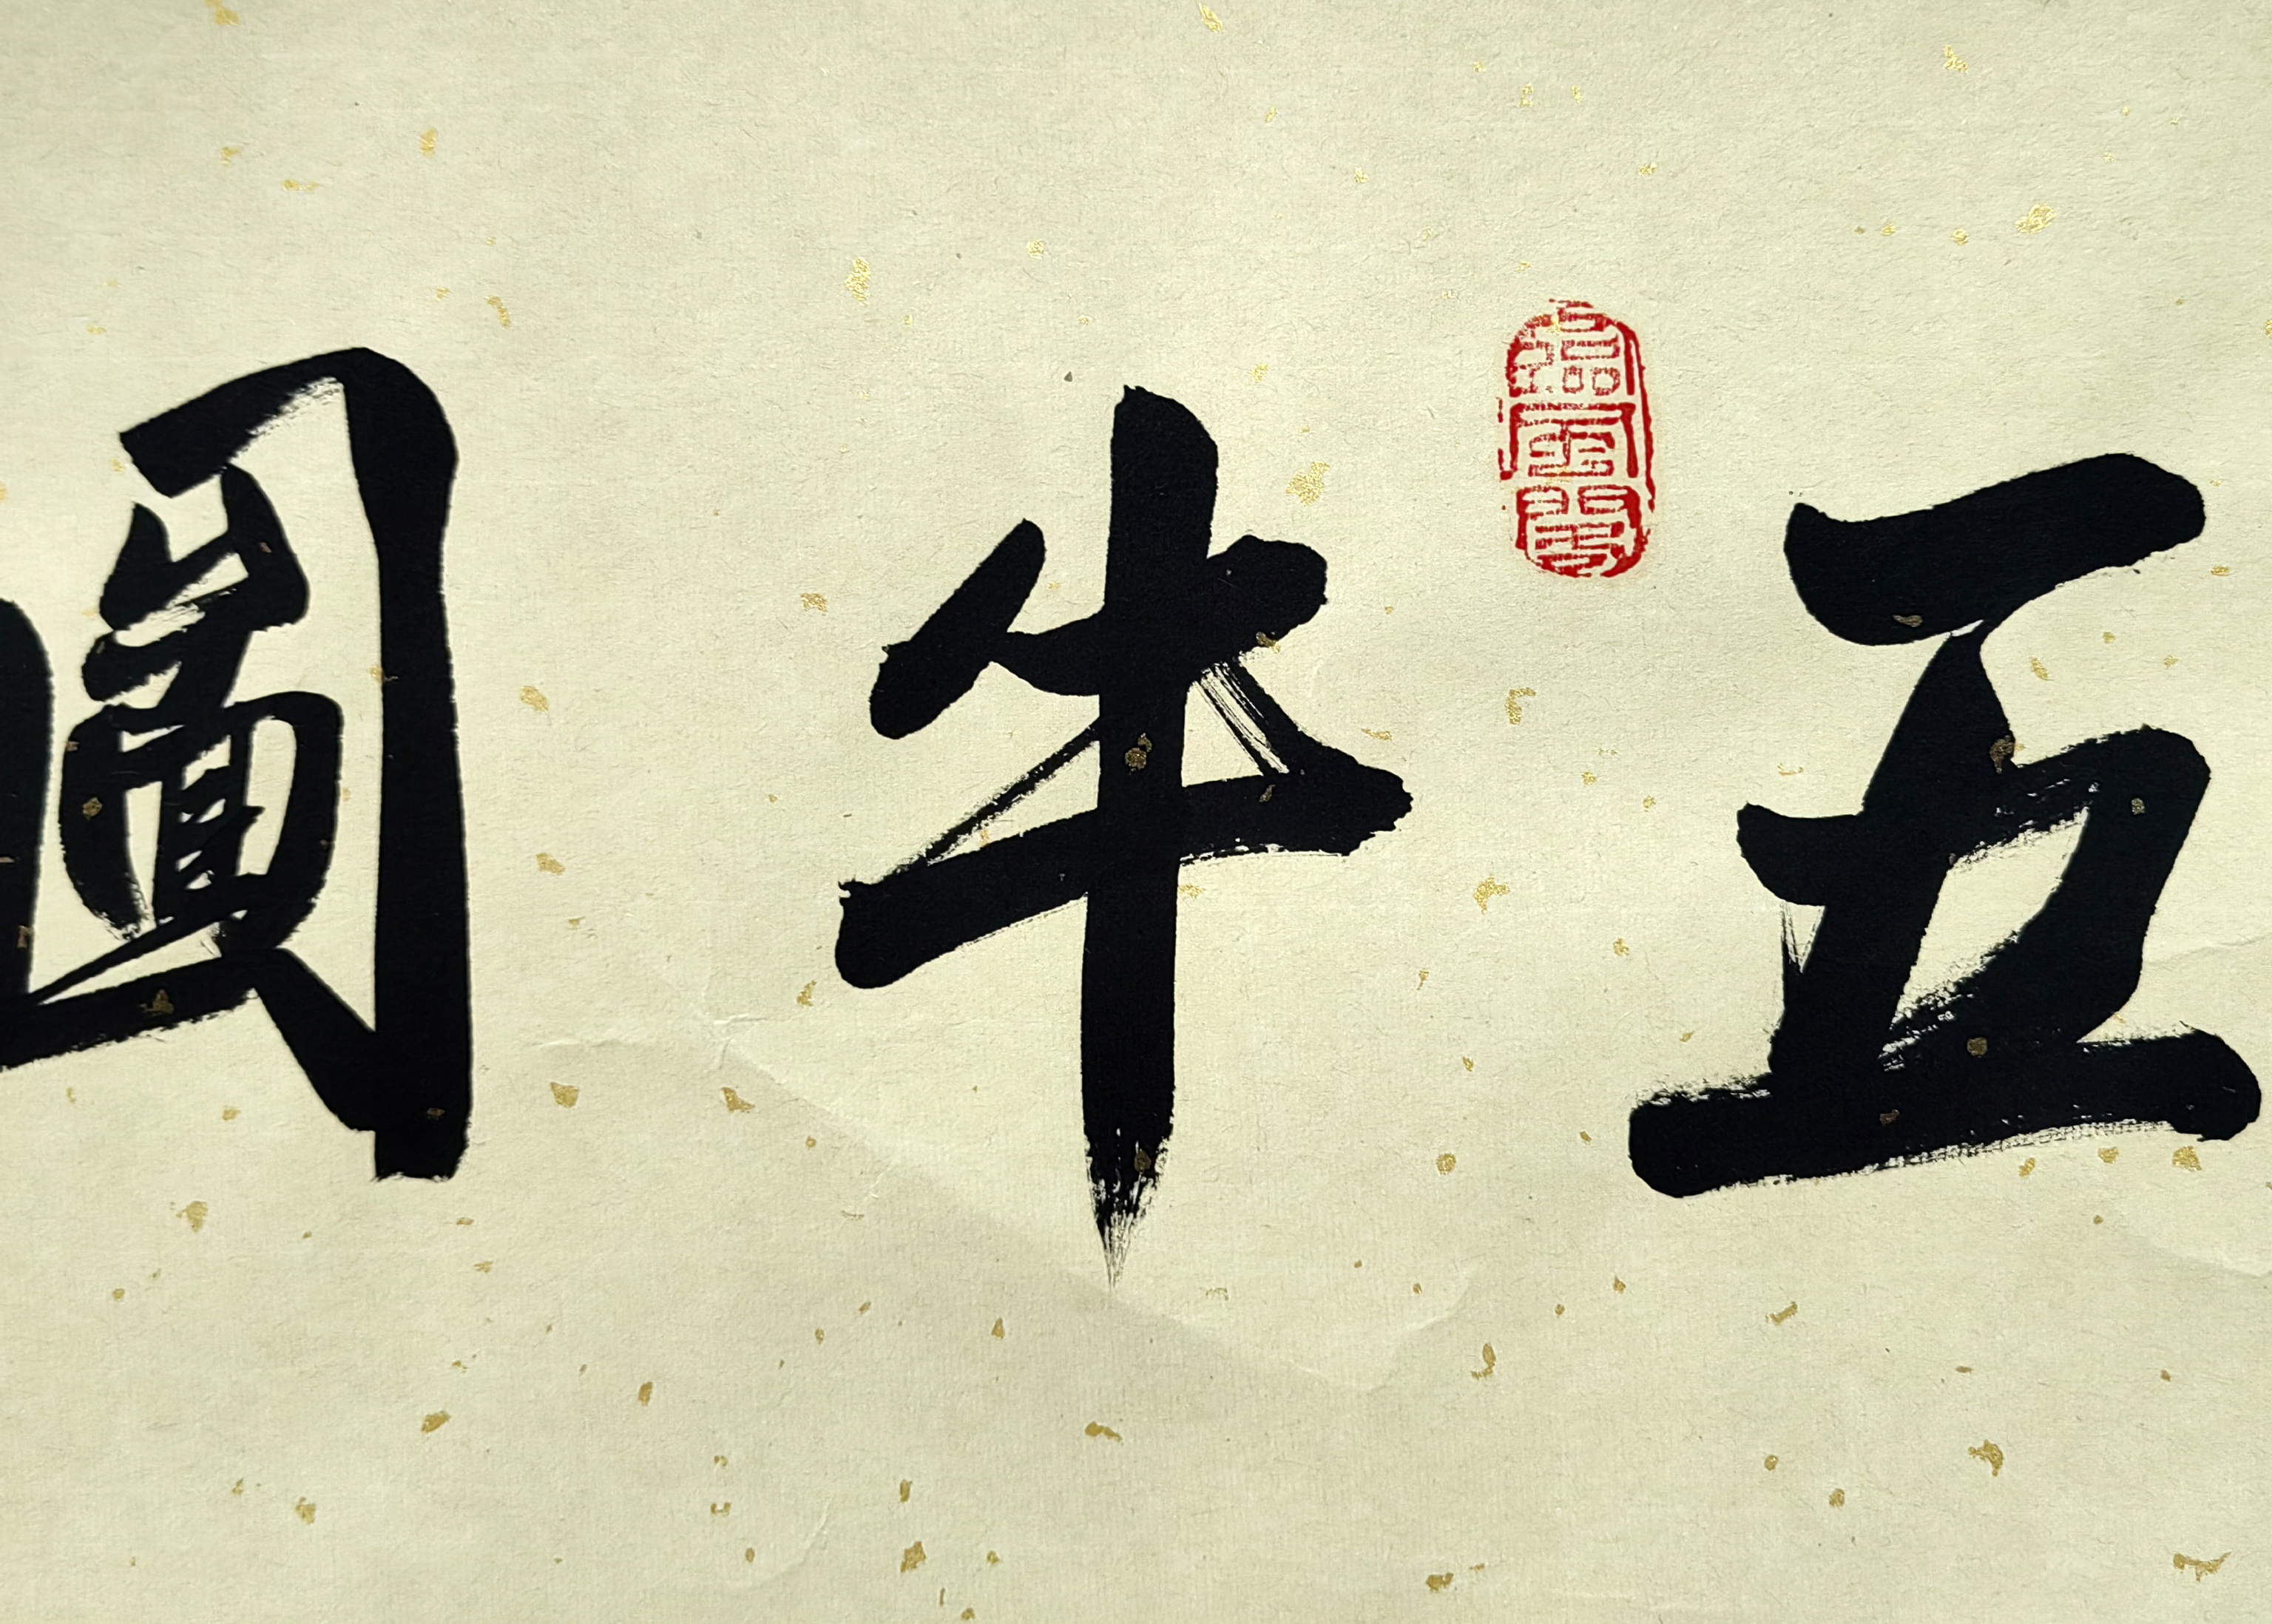 五牛圖